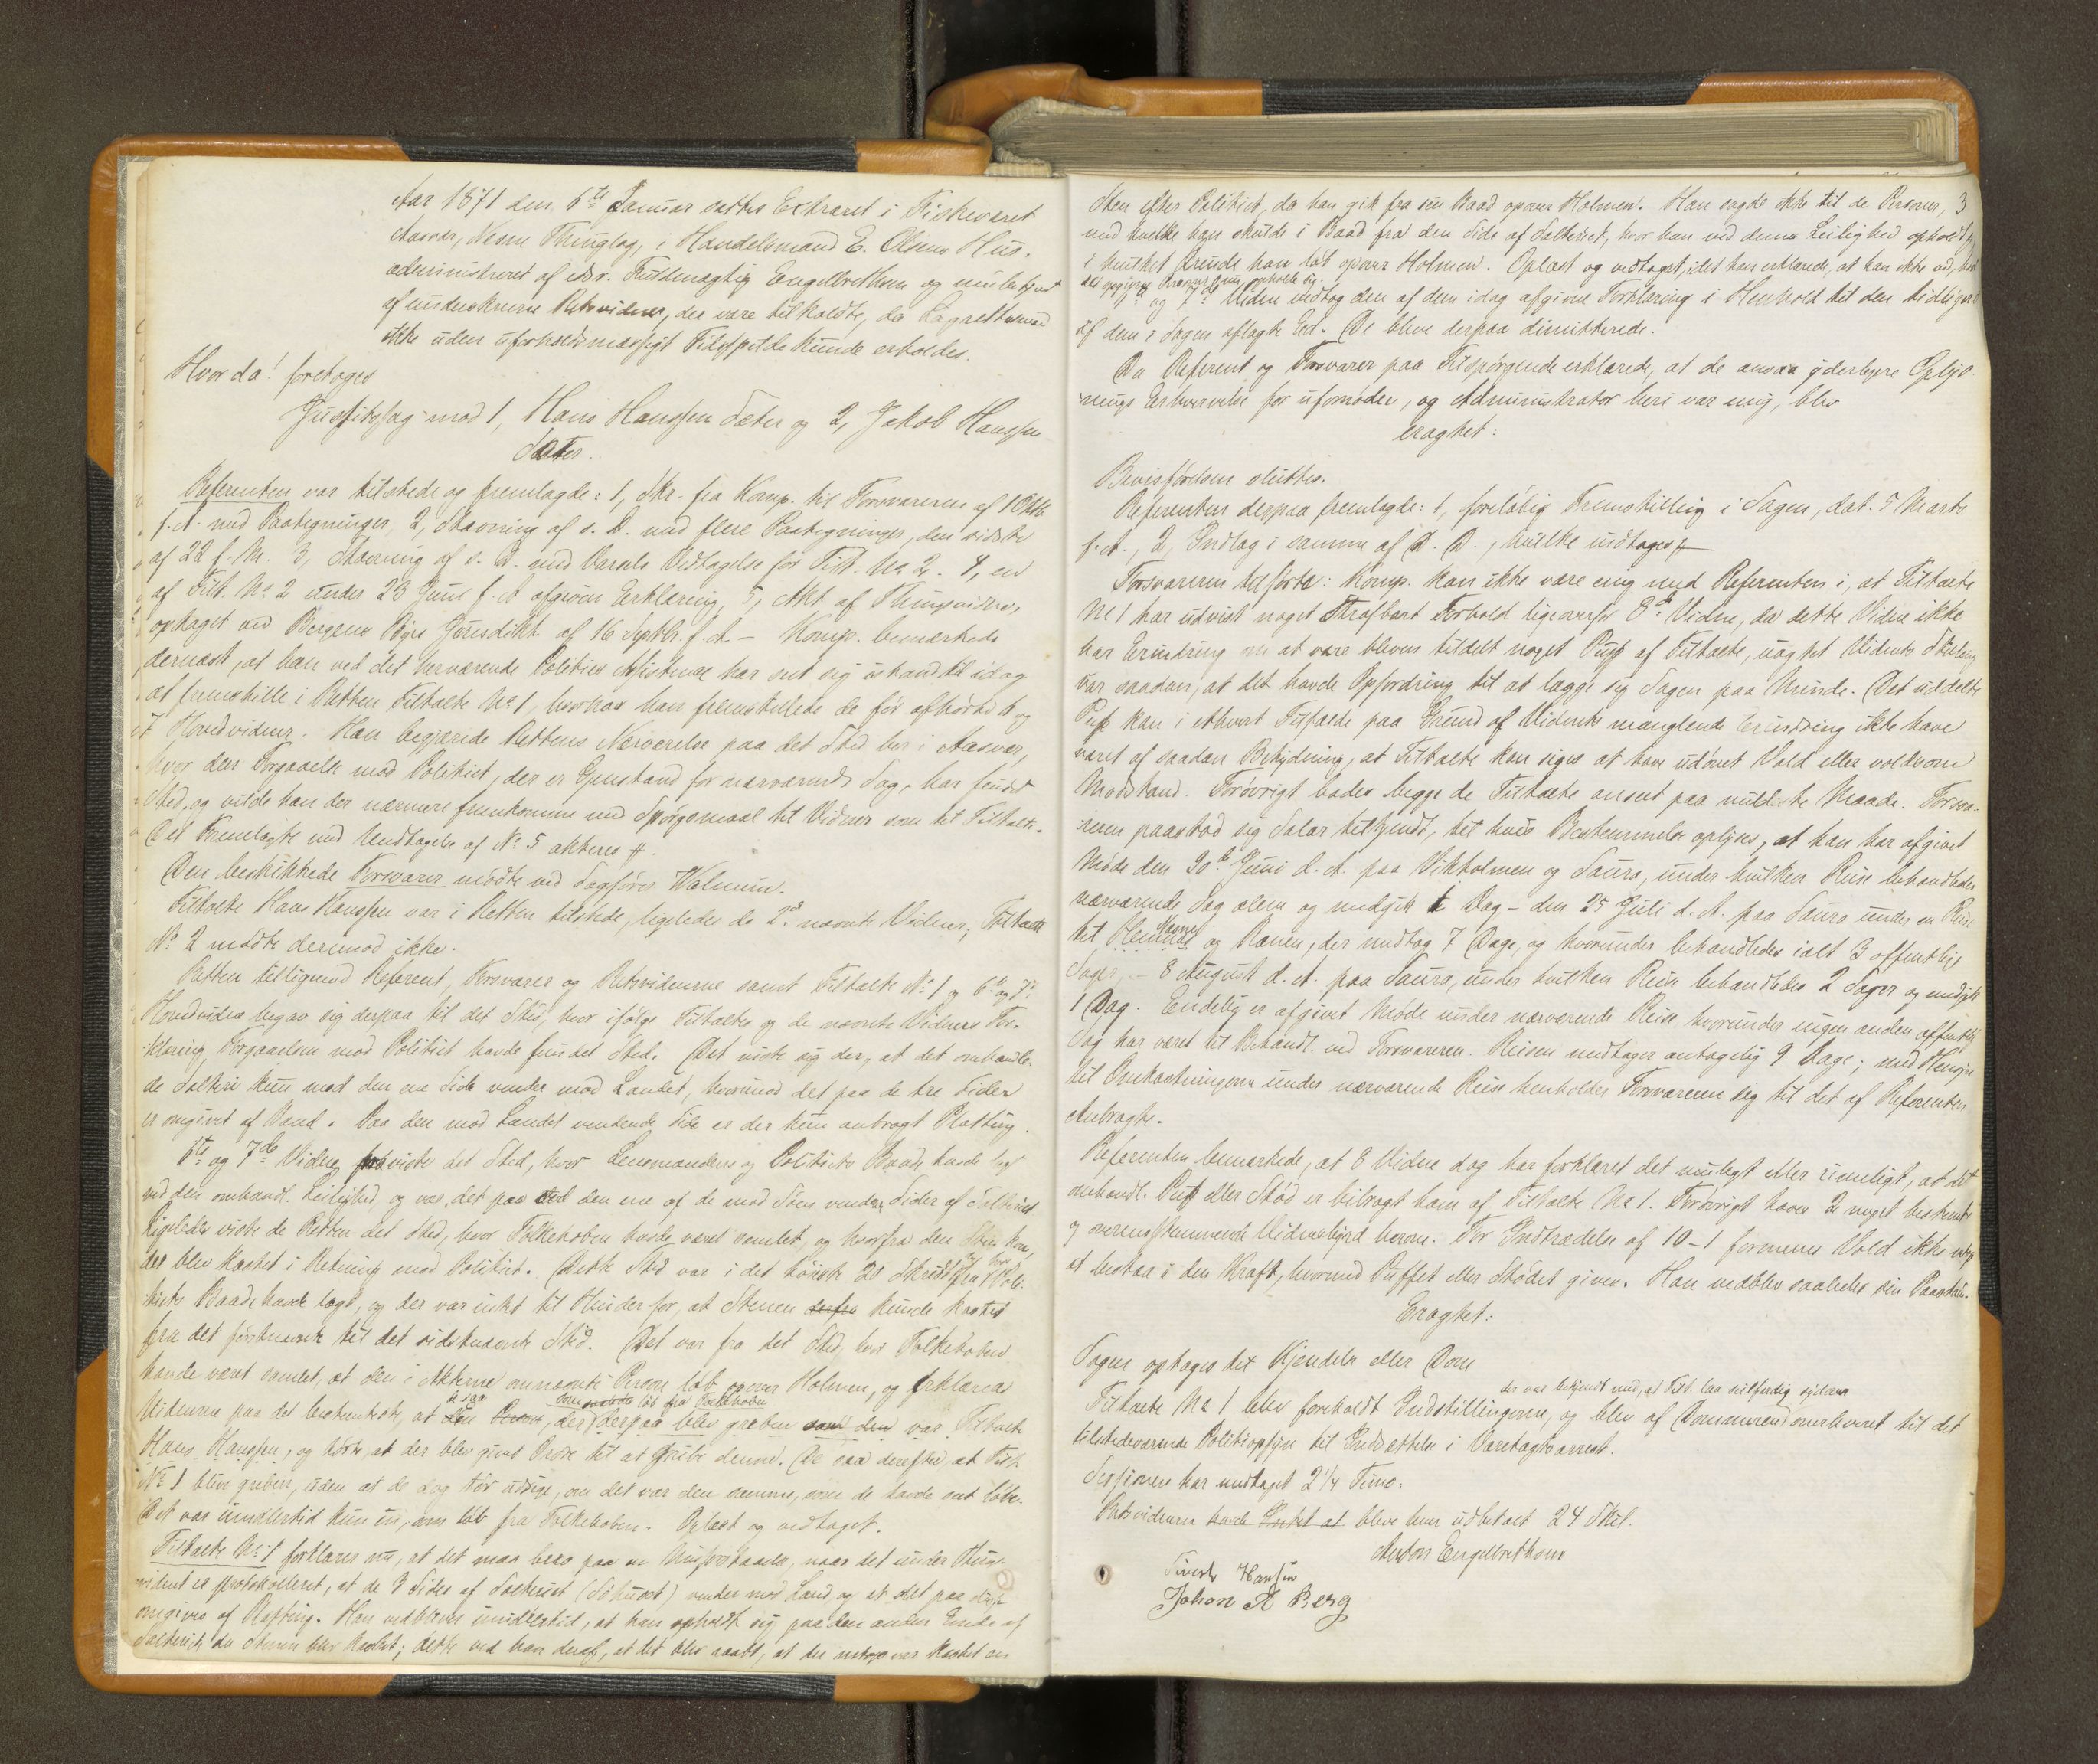 Aar 1871 den 6te Januar sattes Extraret i Fiskeværet
Aasvær, Nesne Thinglag, i Handelsmand E. Olsens Hus.
administreret af edsv. Fuldmægtig Engelbrethsen og meddeltjent
af underskrevne Retsvidner, der vare tilkaldte, da Lagrettesmænd
ikke uden uforholdsmæssigt Tidsspilde kunde erholdes.
Hvor da! foretoges
Justitssag mod 1, Hans Hanssen Sæter og 2, Jakob Hanssen
Sæter.
Referenten var tilstede og fremlagde: 1, Skr. fra Komp. til Forsvareren af 1 Oktb.
f. A. med Paategninger, 2, Stævning af s. D. med flere Paategninger, den sidste
af 22 f. M. 3, Stævning af s. D. med Varsels Vedtagelse for Tilt. No 2. 4, en
af Tilt. No 2 under 23 Juni f. A. afgiven Erklæring, 5, Akt af Thingsvidne,
optaget ved Bergens Byes Jurisdikt. af 16 Septbr. f. A. – Komp. bemærkede
dernæst, at han ved det herværende Politis Assistence har set sig istand til idag
at fremstille i Retten Tiltalte No 1, hvorhos han fremstillede de før afhørte 6 og
7 Hovedvidner. Han begjærede Rettens Nærværelse paa det Sted her i Aasvær,
hvor den Forgaaelse mod Politiet, der er Gjenstand for nærværende Sag, har fundet
Sted, og vilde han der nærmere fremkomme med Spørgsmaal til Vidner som til Tiltalte.
Det Fremlagte med Undtagelse af No 5 akteres #.
Den beskikkede Forsvarer mødte ved Sagfører Walnum.
Tiltalte Hans Hanssen var i Retten tilstede, ligeledes de 2de nævnte Vidner; Tiltalte
No 2 mødte derimod ikke.
Retten tilligemed Referent, Forsvarer og Retsvidnerne samt Tiltalte No 1 og 6te og 7de
Hovedvidne begav sig derpaa til det Sted, hvor ifølge Tiltaltes og de nævnte Vidners For-
klaring Forgaaelsen mod Politiet havde fundet Sted. Det viste sig der, at det omhandle-
de Salteri kun med den ene Side vender mod Landet, hvorimod det paa de tre Sider
er omgivet af Vand. Paa den mod Landet vendende Side er der kun anbragt Platting.
6te og 7de Vidne paaviste det Sted, hvor Lensmandens og Politiets Baade havde lagt
ved den omhandl. Leilighed, og var det paa den ene af de mod Søen vendende Sider af Salteriet.
Ligeledes viste de Retten det Sted, hvor Folkehoben havde været samlet, og hvorfra den Sten kom,
der blev kastet i Retning mod Politiet. Dette Sted var i det høieste 20 Skridt fra der, hvor Poli-
tiets Baade havde lagt, og der var intet til Hinder for, at Stenen kunde kastes
fra det førstnævnte til det sidstnævnte Sted. Det var fra det Sted, hvor Folkehoben
havde været samlet, at den i Akterne omnævnte Person løb opover Holmen, og erklærede
Vidnerne paa det bestemteste, at de saa den Person, som løb fra Folkehoben, der derpaa blev greben var Tiltalte
Hans Hanssen, og hørte, at der blev givet Ordre til at gribe denne. De saa derefter, at Tilt.
No 1 blev greben, uden at de dog tør udsige, om det var den samme, som de havde set løbe.
Det var imidlertid kun en, som løb fra Folkehoben. Oplæst og vedtaget.
Tiltalte No 1 forklarer nu, at det maa bero paa en Misforstaaelse, naar det under Thing-
vidnet er protokolleret, at de 3 Sider af Salteriet (Søhuset) vender mod Land og at det paa disse
omgives af Platting. Han vedbliver imidlertid, at han opholdt sig paa den anden Ende af
Salteriet, da Stenen blev kastet; dette ved han deraf, at det blev raabt, at der netop var kastet en
3
Sten efter Politiet, da han gik fra sin Baad opover Holmen. Han sagde ikke til de Personer,
med hvilke han skulde i Baad fra den Side af Salteriet, hvor han ved denne Leilighed opholdt sig,
i hvilket Øiemed han løb opover Holmen. Oplæst og vedtaget, idet han erklærede, at han ikke ved, hvor
de opgivne Personer nu opholde sig.
6te og 7de Vidne vedtog den af dem idag afgivne Forklaring i Henhold til den tidligere
af dem i Sagen aflagte Ed. De bleve derpaa dimitterede.
Da Referent og Forsvarer paa Tilspørgende erklærede, at de ansaa yderligere Oplys-
nings Erhvervelse for ufornøden, og Administrator heri var enig, blev
eragtet:
Bevisførelsen sluttes.
Referenten derpaa fremlagde: 1, foreløbig Fremstilling i Sagen, dat. 5 Marts
f. A., 2, Indlæg i samme af D. D., hvilke indtages #
Forsvareren tilførte: Komp. kan ikke være enig med Referenten i, at Tiltalte
No 1 har udvist noget strafbart Forhold ligeoverfor 8de Vidne, da dette Vidne ikke
har Erindring om at være bleven tildelt noget Puf af Tiltalte, uagtet Vidnets Stilling
var saadan, at det havde Opfordring til at lægge sig Sagen paa Minde. Det uddelte
Puf kan i ethvert Tilfælde paa Grund af Vidnets manglende Erindring ikke have
været af saadan Betydning, at Tiltalte kan siges at have udøvet Vold eller voldsom
Modstand. Forøvrigt bades begge de Tiltalte anseet paa mildeste Maade. Forsva-
reren paastod sig Salær tilkjendt, til hvis Bestemmelse oplyses, at han har afgivet
Møde den 30te Juni d. A. paa Vikholmen og Saura, under hvilken Reise behandledes
nærværende Sag alene og medgik 1 Dag – den 25 Juli d. A. paa Saura under en Reise
til Hemnæs og Ranen, der medtog 7 Dage, og hvorunder behandledes ialt 3 offentlige
Sager, – 8 August d. A. paa Saura, under hvilken Reise behandledes 2 Sager og medgik
1 Dag. Endelig er afgivet Møde under nærværende Reise, hvorunder ingen anden offentlig
Sag har været til Behandl. ved Forsvareren. Reisen medtager antagelig 9 Dage; med Hensyn
til Omkostningerne under nærværende Reise henholder Forsvareren sig til det af Referenten
Anbragte.
Referenten bemærkede, at 8 Vidne dog har forklaret det muligt eller rimeligt, at det
omhandl. Puf eller Stød er bibragt ham af Tiltalte No 1. Forøvrigt haves noget bestemte
og overensstemmende Vidnesbyrd herom. For Indtrædelse af 10–1 formenes Vold ikke netop
at bestaa i den Kraft, hvormed Puffet eller Stødet gives. Han vedblev saaledes sin Paastand.
Eragtet:
Sagen optages til Kjendelse eller Dom
der var bekjendt med, at Tilt. laa seilfærdig sydover
Tiltalte No 1 blev foreholdt Indstillingerne, og blev af Dommeren overleveret til det
tilstedeværende Politiopsyn til Indsættelse i Varetægtsarrest.
Sessionen har medtaget 2 1/4 Time.
Retsvidnerne havde Intet at bleve hver udbetalt 24 Skil.
Anton Engelbrethsen
Sivert Hansen
Johan A Berg